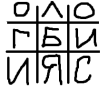 О Л О
Г Б И
И Я С